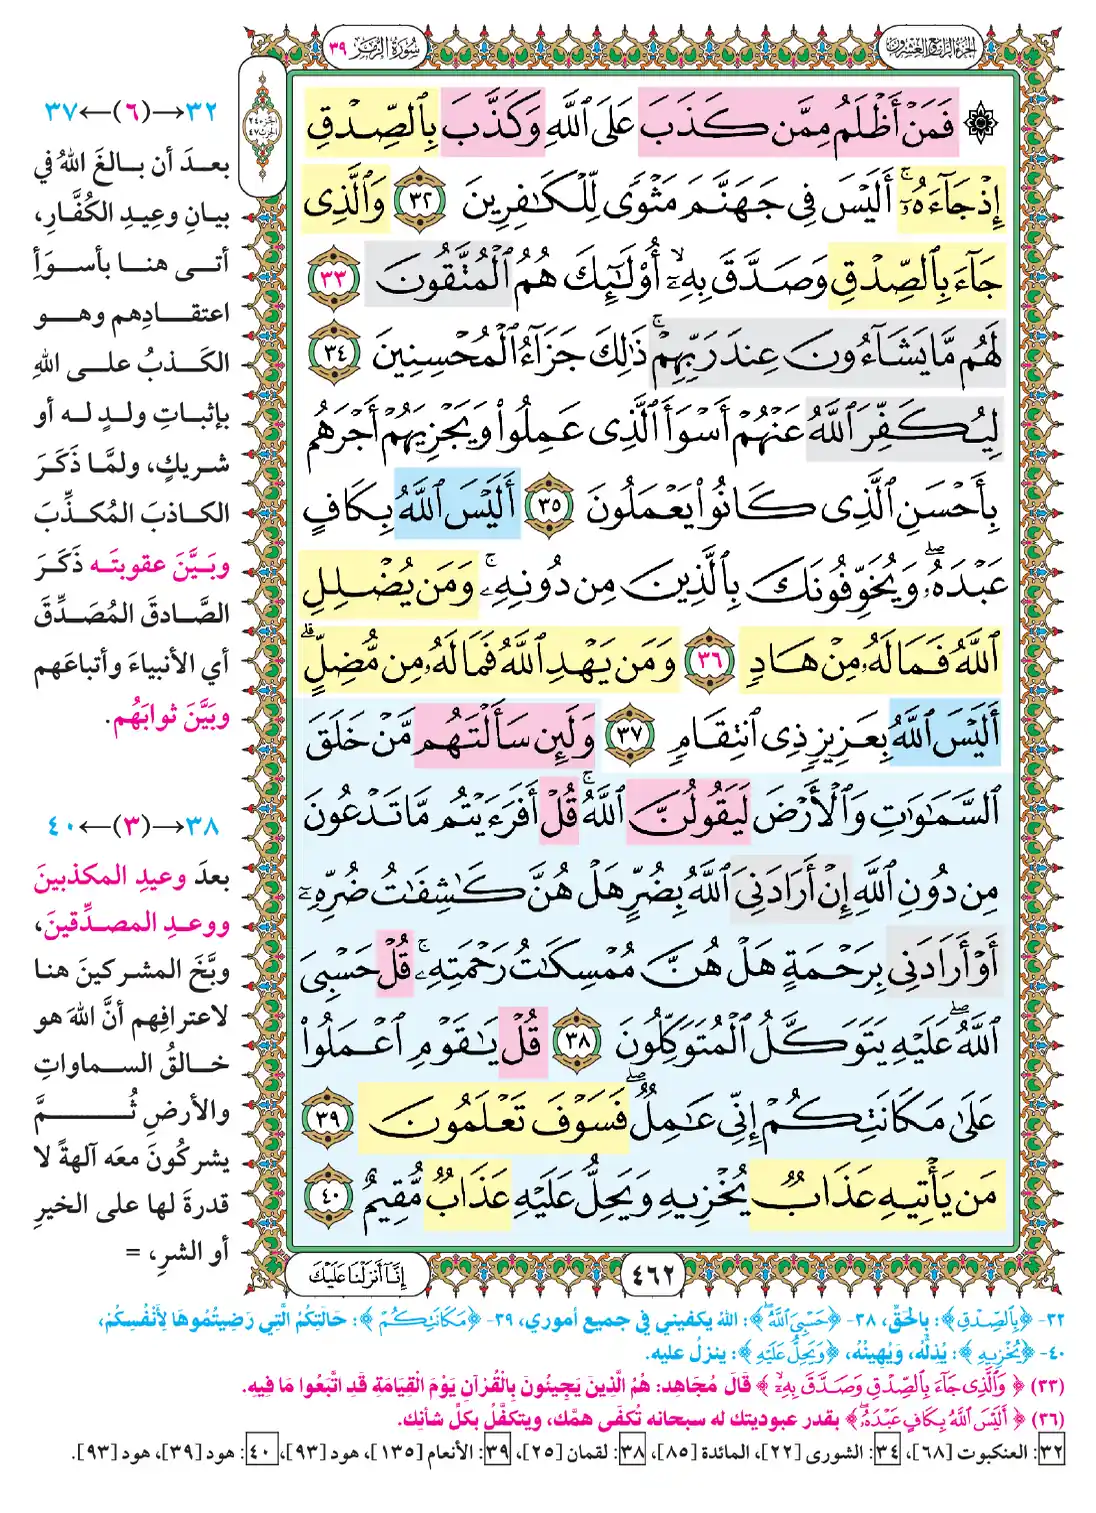 الجزء الرابع والعشرون
سورة الزمر ٣٩
۞ فَمَنْ أَظْلَمُ مِمَّن كَذَبَ عَلَى ٱللَّهِ وَكَذَّبَ بِٱلصِّدْقِ
إِذْ جَآءَهُۥٓ ۚ أَلَيْسَ فِى جَهَنَّمَ مَثْوًى لِّلْكَـٰفِرِينَ ٣٢ وَٱلَّذِى
جَآءَ بِٱلصِّدْقِ وَصَدَّقَ بِهِۦٓ ۙ أُو۟لَـٰٓئِكَ هُمُ ٱلْمُتَّقُونَ ٣٣
لَهُم مَّا يَشَآءُونَ عِندَ رَبِّهِمْ ۚ ذَٰلِكَ جَزَآءُ ٱلْمُحْسِنِينَ ٣٤
لِيُكَفِّرَ ٱللَّهُ عَنْهُمْ أَسْوَأَ ٱلَّذِى عَمِلُوا۟ وَيَجْزِيَهُمْ أَجْرَهُم
بِأَحْسَنِ ٱلَّذِى كَانُوا۟ يَعْمَلُونَ ٣٥ أَلَيْسَ ٱللَّهُ بِكَافٍ
عَبْدَهُۥ ۖ وَيُخَوِّفُونَكَ بِٱلَّذِينَ مِن دُونِهِۦ ۚ وَمَن يُضْلِلِ
ٱللَّهُ فَمَا لَهُۥ مِنْ هَادٍ ٣٦ وَمَن يَهْدِ ٱللَّهُ فَمَا لَهُۥ مِن مُّضِلٍّ ۗ
أَلَيْسَ ٱللَّهُ بِعَزِيزٍ ذِى ٱنتِقَامٍ ٣٧ وَلَئِن سَأَلْتَهُم مَّنْ خَلَقَ
ٱلسَّمَـٰوَٰتِ وَٱلْأَرْضَ لَيَقُولُنَّ ٱللَّهُ ۚ قُلْ أَفَرَءَيْتُم مَّا تَدْعُونَ
مِن دُونِ ٱللَّهِ إِنْ أَرَادَنِىَ ٱللَّهُ بِضُرٍّ هَلْ هُنَّ كَـٰشِفَـٰتُ ضُرِّهِۦٓ
أَوْ أَرَادَنِى بِرَحْمَةٍ هَلْ هُنَّ مُمْسِكَـٰتُ رَحْمَتِهِۦ ۚ قُلْ حَسْبِىَ
ٱللَّهُ ۖ عَلَيْهِ يَتَوَكَّلُ ٱلْمُتَوَكِّلُونَ ٣٨ قُلْ يَـٰقَوْمِ ٱعْمَلُوا۟
عَلَىٰ مَكَانَتِكُمْ إِنِّى عَـٰمِلٌ ۖ فَسَوْفَ تَعْلَمُونَ ٣٩
مَن يَأْتِيهِ عَذَابٌ يُخْزِيهِ وَيَحِلُّ عَلَيْهِ عَذَابٌ مُّقِيمٌ ٤٠
٤٦٢
إِنَّآ أَنزَلْنَا عَلَيْكَ
٣٢→(٦)←٣٧
بعدَ أن بالغَ اللهُ في
بيانِ وعِيدِ الكُفَّارِ،
أتى هنا بأسوَأِ
اعتقادِهم وهو
الكَذبُ على اللهِ
بإثباتِ ولدٍ له أو
شريكٍ، ولمَّا ذَكَرَ
الكاذبَ المُكذِّبَ
وبَيَّنَ عقوبتَه ذَكَرَ
الصَّادقَ المُصَدِّقَ
أي الأنبياءَ وأتباعَهم
وبَيَّنَ ثوابَهُم.
٣٨→(٣)←٤٠
بعدَ وعيدِ المكذبينَ
ووعدِ المصدِّقينَ،
وبَّخَ المشركينَ هنا
لاعترافِهم أنَّ اللهَ هو
خالقُ السماواتِ
والأرضِ ثُمَّ
يشركُونَ معَه آلهةً لا
قدرةَ لها على الخيرِ
أو الشرِ، =
٣٢- ﴿بِٱلصِّدْقِ﴾: بِالحَقِّ، ٣٨- ﴿حَسْبِىَ ٱللَّهُ ۖ﴾: اللهُ يكفيني في جميع أموري، ٣٩- ﴿مَكَانَتِكُمْ﴾: حَالَتِكُمُ الَّتِي رَضِيتُمُوهَا لِأَنْفُسِكُمْ،
٤٠- ﴿يُخْزِيهِ﴾: يُذِلُّهُ، وَيُهِينُهُ، ﴿وَيَحِلُّ عَلَيْهِ﴾: ينزلُ عليه.
(٣٣) ﴿وَٱلَّذِى جَآءَ بِٱلصِّدْقِ وَصَدَّقَ بِهِۦٓ ۙ﴾ قَالَ مُجَاهِد: هُمُ الَّذِينَ يَجِيئُونَ بِالْقُرْآنِ يَوْمَ الْقِيَامَةِ قَدِ اتَّبَعُوا مَا فِيهِ.
(٣٦) ﴿أَلَيْسَ ٱللَّهُ بِكَافٍ عَبْدَهُۥ ۖ﴾ بقدر عبوديتك له سبحانه تُكفَى همَّك، ويتكفَّلُ بكلِّ شأنك.
٣٢: العنكبوت [٦٨]، ٣٤: الشورى [٢٢]، المائدة [٨٥]، ٣٨: لقمان [٢٥]، ٣٩: الأنعام [١٣٥]، هود [٩٣]، ٤٠: هود [٣٩]، هود [٩٣].